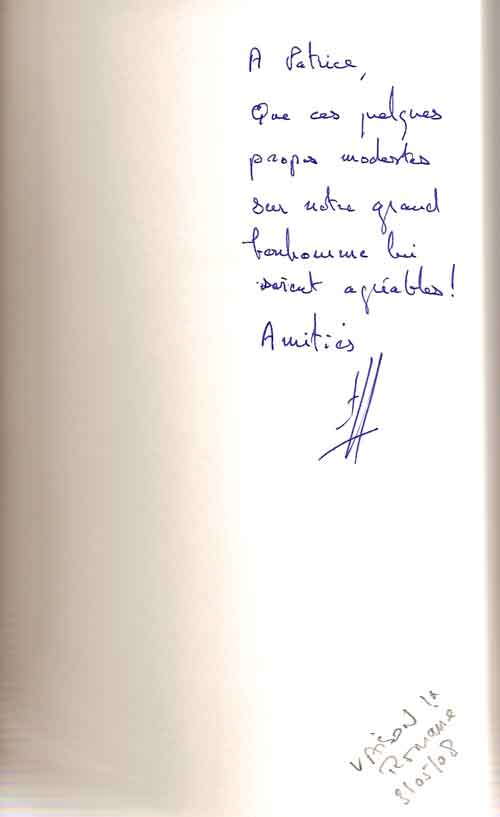 A Patrice,
Que ces quelques
propos modestes
sur notre grand
bonhomme lui
soient agréables !
Amitiés
VAISON la
Romaine
8/05/08